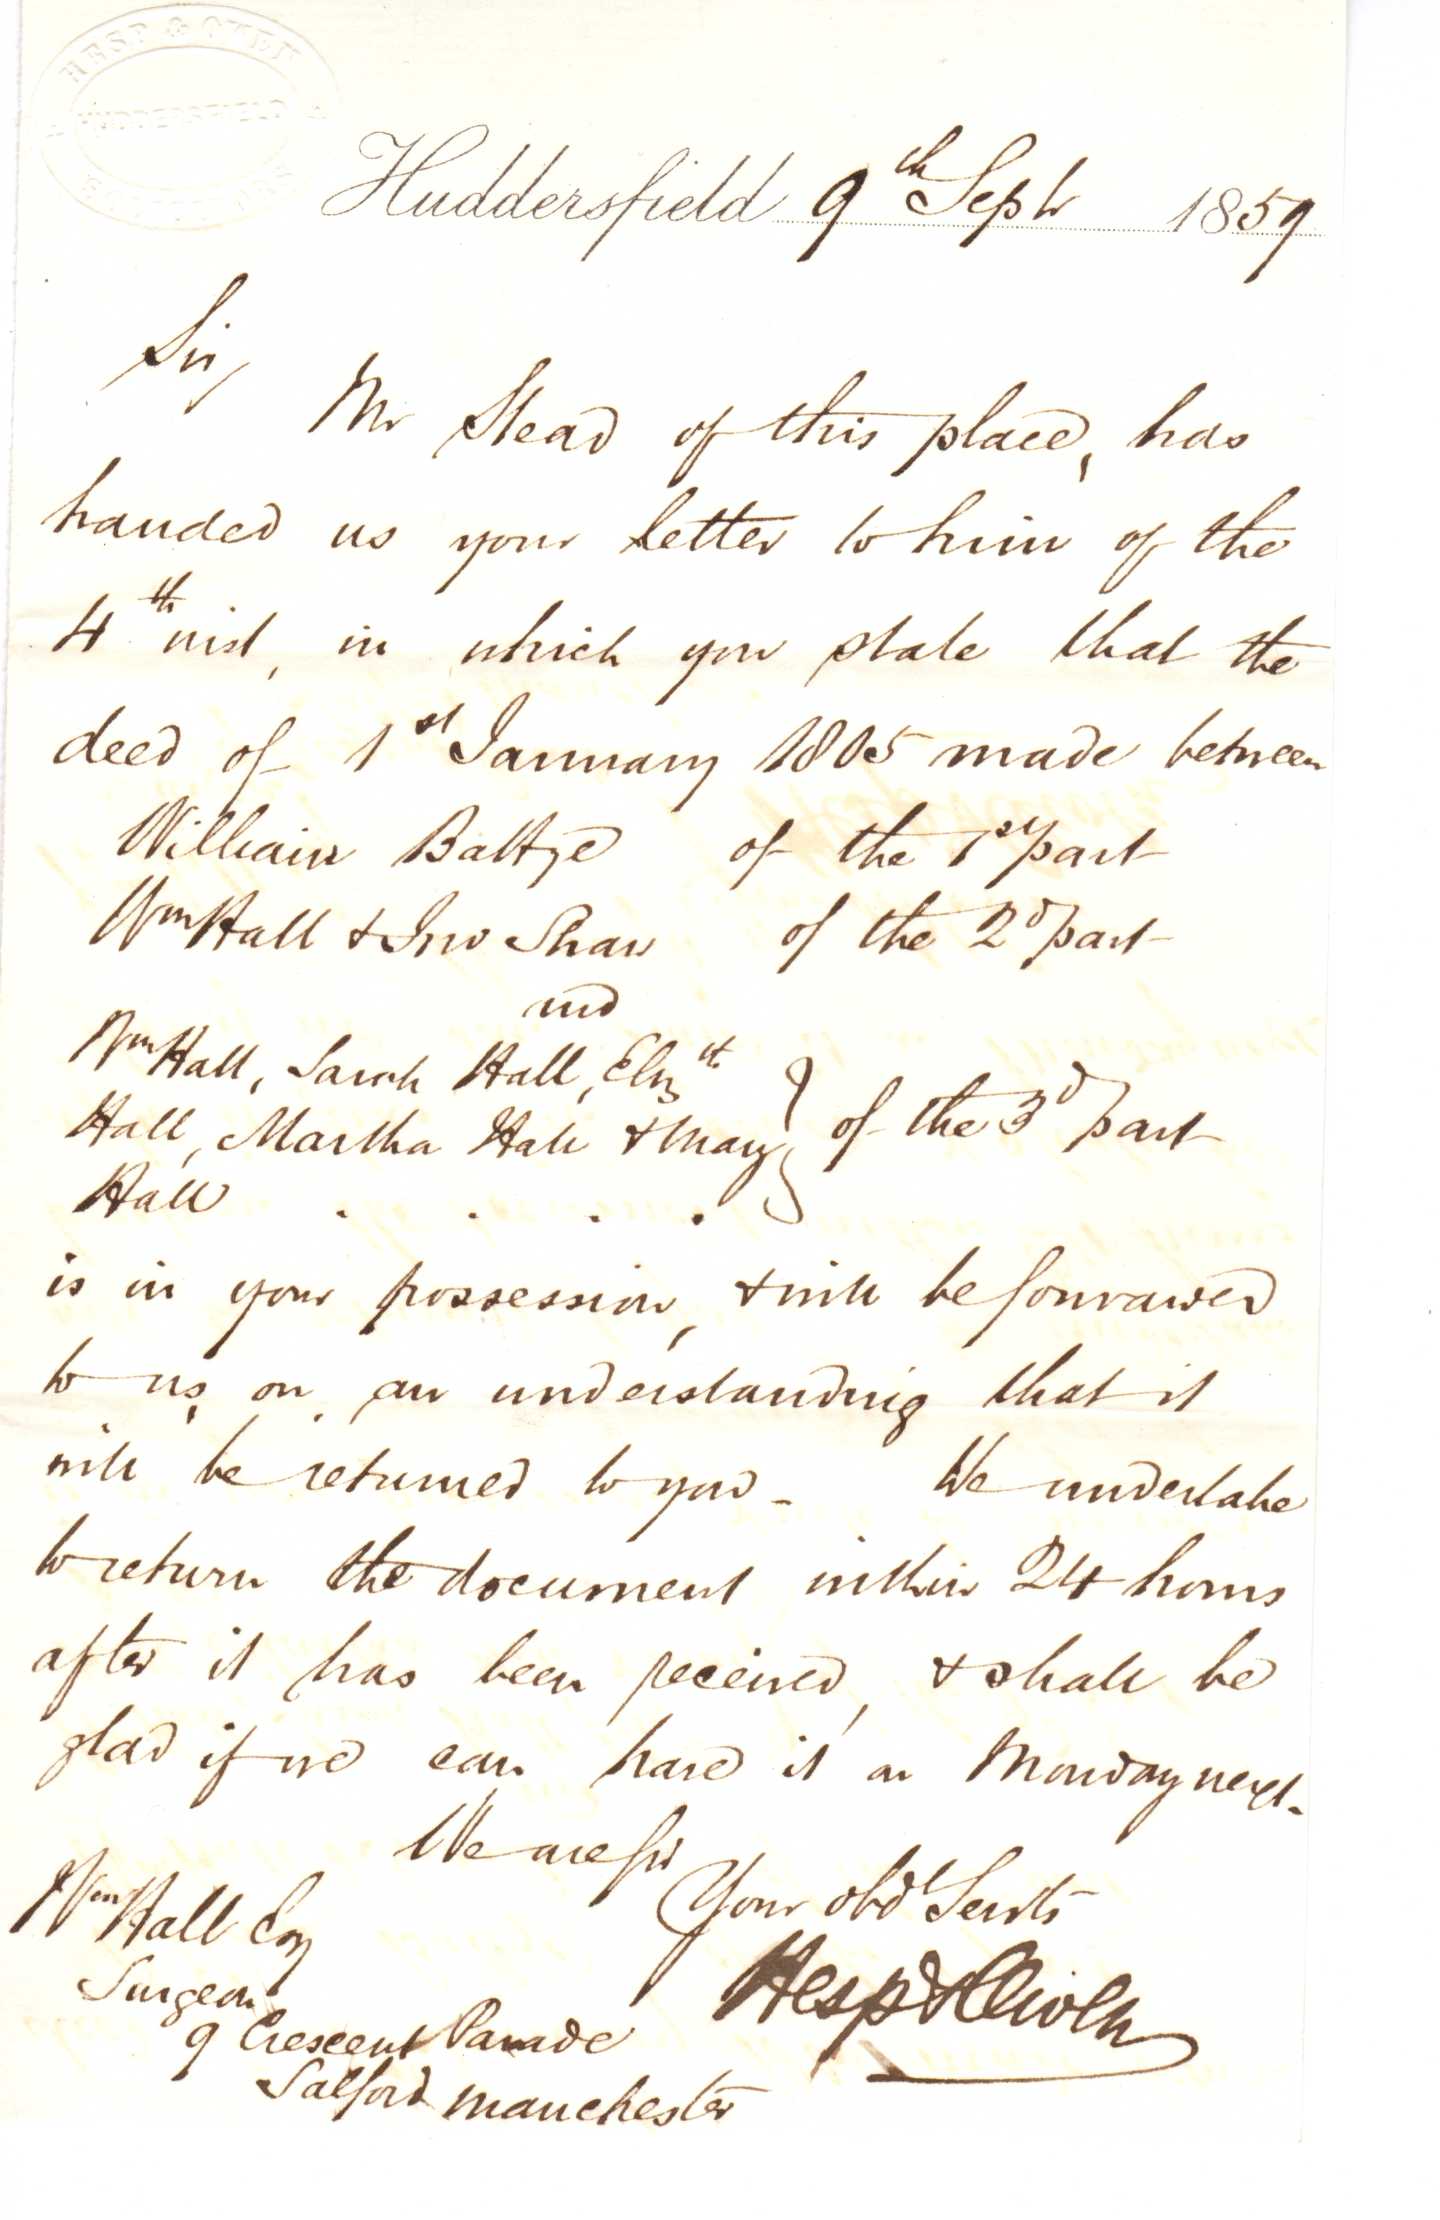 HESP & OWEN
HUDDERSFIELD
Huddersfield 9th Septr 1859
Sir,
Mr Stead of this place, has
handed us your letter to him of the
4th inst, in which you state that the
deed of 1st January 1805 made between
William Battye of the 1st part
Wm Hall & Jno Shaw of the 2d part
and
Wm Hall, Sarah Hall, Elizth
Hall, Martha Hall & Mary } of the 3d part
Hall . . . .
is in your possession, & will be forwarded
to us, on an understanding that it
will be returned to you - We undertake
to return the document within 24 hours
after it has been received, & shall be
glad if we can have it on Monday next.
We are Sir
Your obdt Servts
Hesp & Owen
Wm Hall Esq
Surgeon
9 Crescent Parade
Salford Manchester